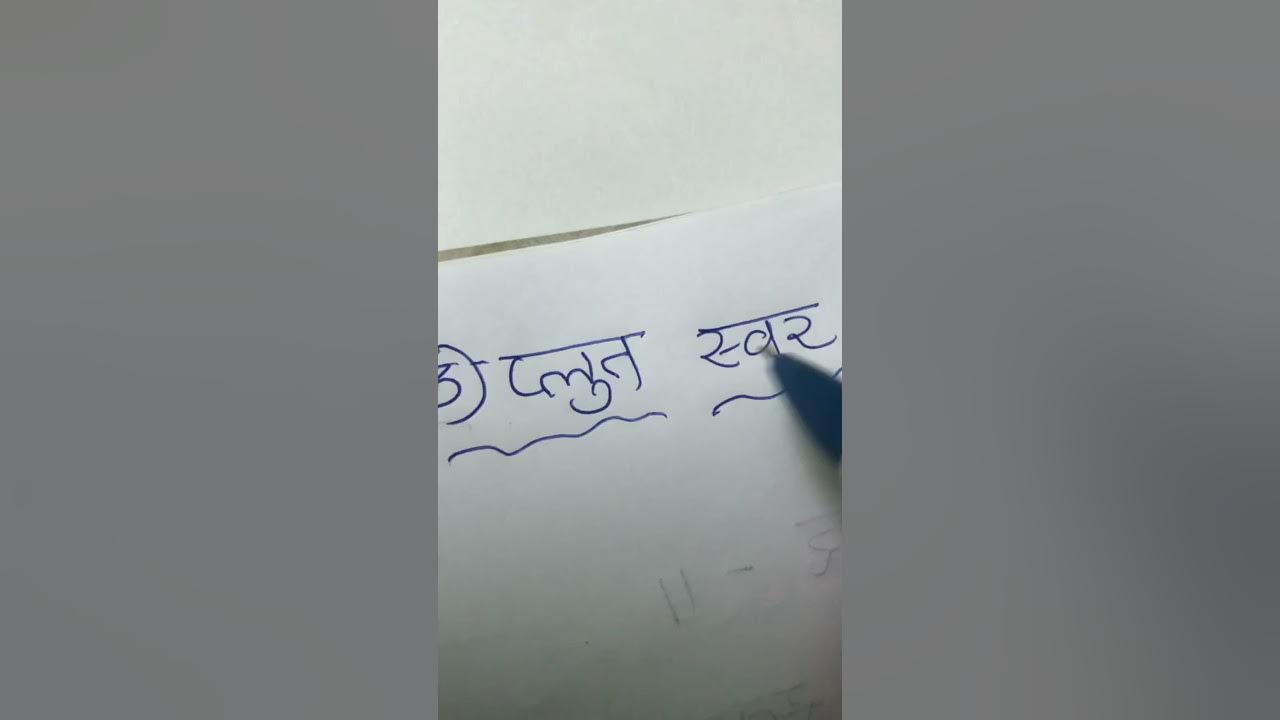 3) प्लुत स्वर